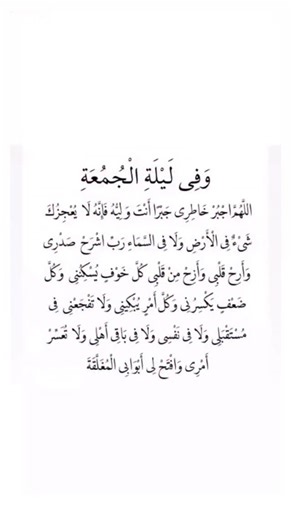 وَفِى لَيْلَةِ الْجُمُعَةِ
اللَّهُمَّ اجْبُرْ خَاطِرِى جَبْرًا أَنْتَ وَلِيُّهُ فَإِنَّهُ لَا يُعْجِزُكَ
شَىْءٌ فِى الْأَرْضِ وَلَا فِى السَّمَاءِ رَبِّ اشْرَحْ صَدْرِى
وَأَرِحْ قَلْبِى وَأَزِحْ مِنْ قَلْبِى كُلَّ خَوْفٍ يُسْكِنُنِى وَكُلَّ
ضَعْفٍ يَكْسِرُنِى وَكُلَّ أَمْرٍ يُبْكِينِى وَلَا تَفْجَعْنِى فِى
مُسْتَقْبَلِى وَلَا فِى نَفْسِى وَلَا فِى بَاقِى أَهْلِى وَلَا تُعَسِّرْ
أَمْرِى وَافْتَحْ لِى أَبْوَابِى الْمُغْلَقَةَ